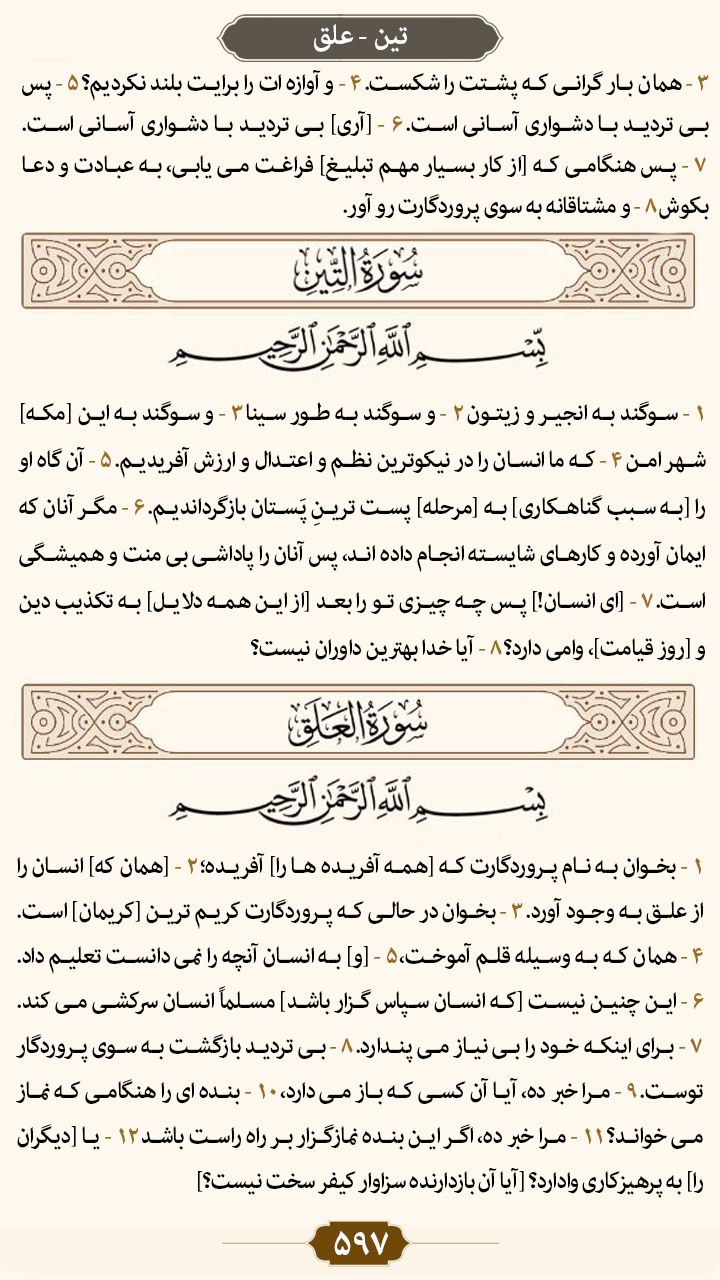 تین - علق
۳ - همان بار گرانی که پشتت را شکست. ۴ - و آوازه ات را برایت بلند نکردیم؟ ۵ - پس
بی تردید با دشواری آسانی است. ۶ - [آری] بی تردید با دشواری آسانی است.
۷ - پس هنگامی که [از کار بسیار مهم تبلیغ] فراغت می یابی، به عبادت و دعا
بکوش ۸ - و مشتاقانه به سوی پروردگارت رو آور.
سُورَةُ التِّينِ
بِسْمِ ٱللَّهِ ٱلرَّحْمَٰنِ ٱلرَّحِيمِ
۱ - سوگند به انجیر و زیتون ۲ - و سوگند به طور سینا ۳ - و سوگند به این [مکه]
شهر امن ۴ - که ما انسان را در نیکوترین نظم و اعتدال و ارزش آفریدیم. ۵ - آن گاه او
را [به سبب گناهکاری] به [مرحله] پست ترینِ پَستان بازگرداندیم. ۶ - مگر آنان که
ایمان آورده و کارهای شایسته انجام داده اند، پس آنان را پاداشی بی منت و همیشگی
است. ۷ - [ای انسان!] پس چه چیزی تو را بعد [از این همه دلایل] به تکذیب دین
و [روز قیامت]، وامی دارد؟ ۸ - آیا خدا بهترین داوران نیست؟
سُورَةُ العَلَقِ
بِسْمِ ٱللَّهِ ٱلرَّحْمَٰنِ ٱلرَّحِيمِ
۱ - بخوان به نام پروردگارت که [همه آفریده ها را] آفریده؛ ۲ - [همان که] انسان را
از علق به وجود آورد. ۳ - بخوان در حالی که پروردگارت کریم ترین [کریمان] است.
۴ - همان که به وسیله قلم آموخت، ۵ - [و] به انسان آنچه را نمی دانست تعلیم داد.
۶ - این چنین نیست [که انسان سپاس گزار باشد] مسلماً انسان سرکشی می کند.
۷ - برای اینکه خود را بی نیاز می پندارد. ۸ - بی تردید بازگشت به سوی پروردگار
توست. ۹ - مرا خبر ده، آیا آن کسی که باز می دارد، ۱۰ - بنده ای را هنگامی که نماز
می خواند؟ ۱۱ - مرا خبر ده، اگر این بنده نمازگزار بر راه راست باشد ۱۲ - یا [دیگران
را] به پرهیزکاری وادارد؟ [آیا آن بازدارنده سزاوار کیفر سخت نیست؟]
۵۹۷